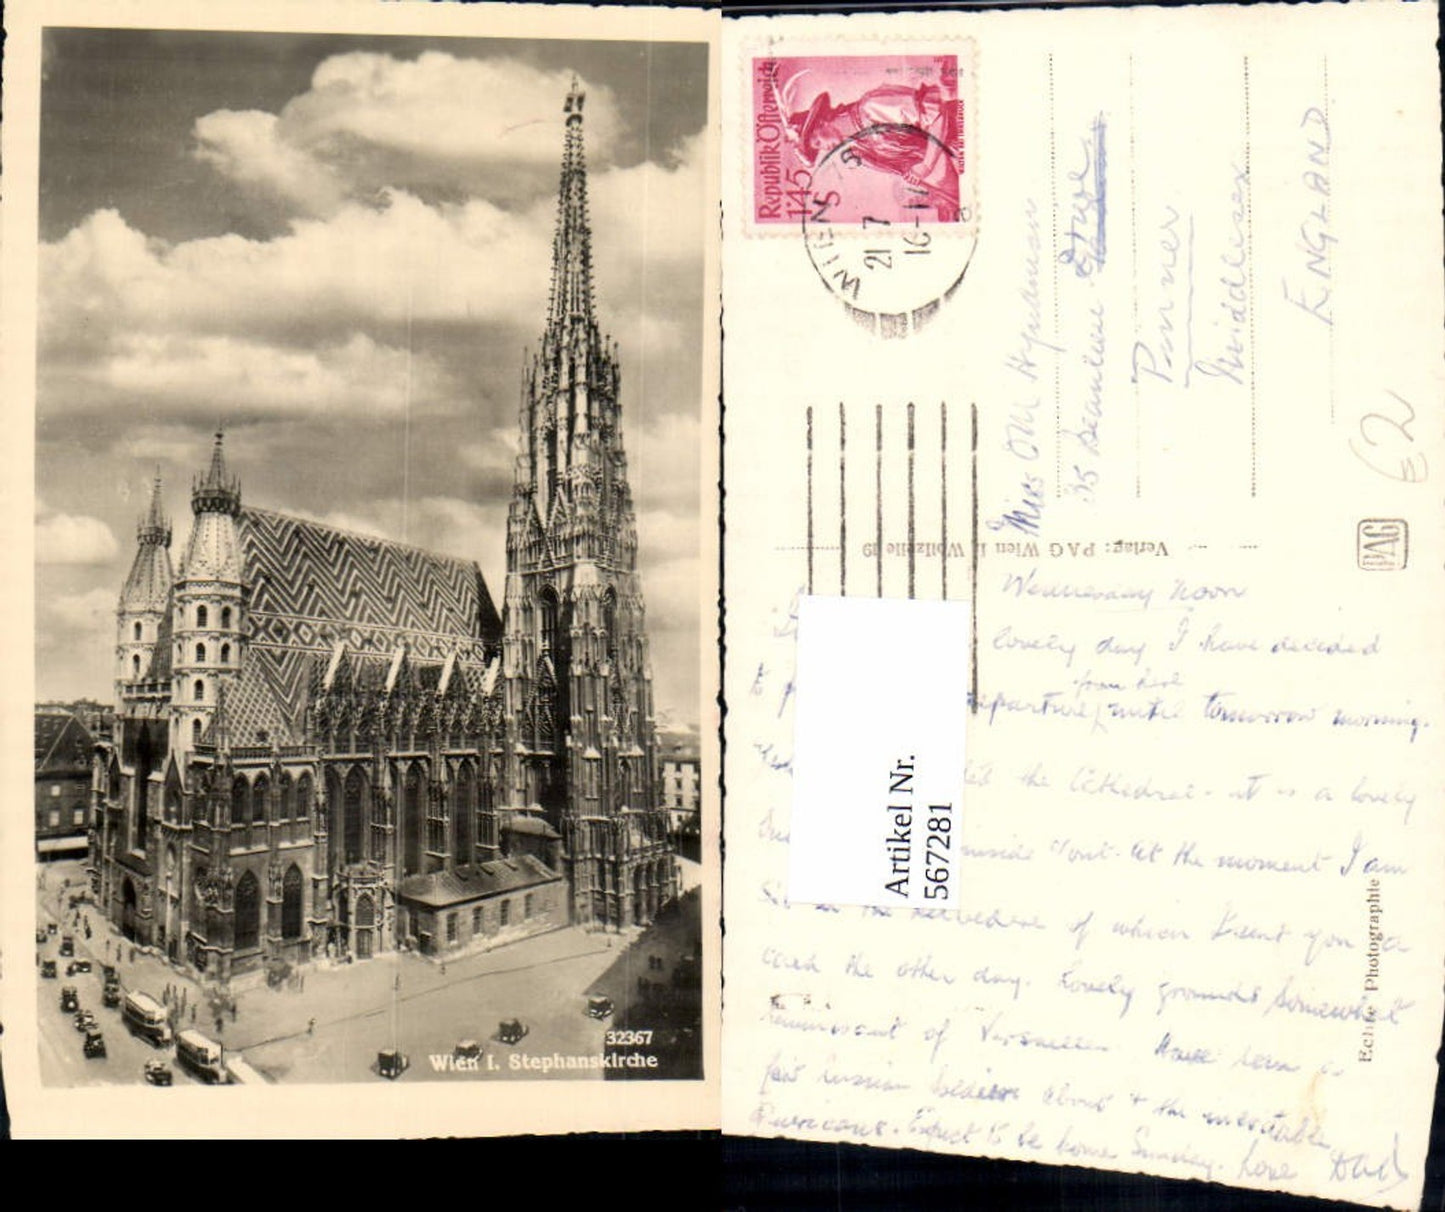 32367
Wien I. Stephanskirche
Republik Österreich
1.45
WIEN
21 7
16-17
Miss Hyndman
35
Pinner
Middlesex
ENGLAND
Verlag: PAG Wien I. Wollzeile 19
PAG
Wednesday noon
lovely day I have decided
to departure from here until tomorrow morning.
the Cathedral - it is a lovely
inside & out. At the moment I am
in the Belvedere of which I sent you a
card the other day. Lovely grounds somewhat
reminiscent of Versailles. Have seen a
fair Russian soldiers about & the inevitable
Americans. Expect to be home Sunday. Love Dad
Artikel Nr.
567281
Echte Photographie